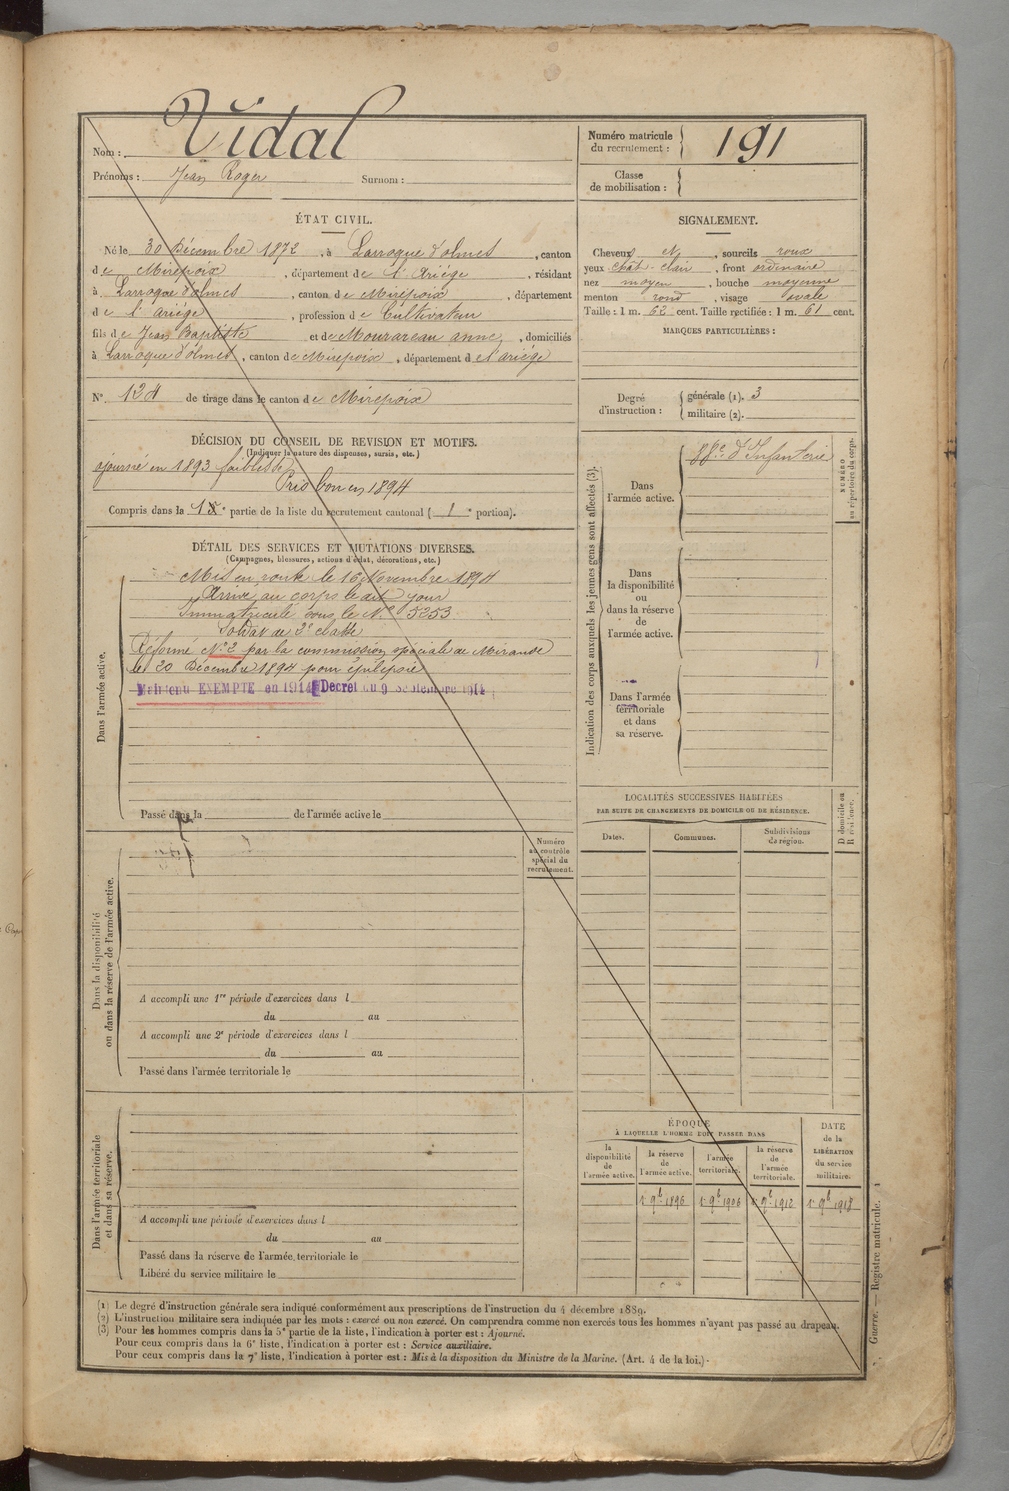 Nom : Vidal
Prénoms : Jean Roger Surnom :
Numéro matricule du recrutement : 191
Classe de mobilisation :
ÉTAT CIVIL.
Né le 30 Décembre 1872, à Larroque d'olmes, canton
de Mirepoix, département de l'Ariège, résidant
à Larroque d'olmes, canton de Mirepoix, département
de l'ariége, profession de Cultivateur
fils de Jean Baptiste et de Mourareau anne, domiciliés
à Larroque d'olmes, canton de Mirepoix, département de l'ariége
SIGNALEMENT.
Cheveux N, sourcils roux
yeux chât-clair, front ordinaire
nez moyen, bouche moyenne
menton rond, visage ovale
Taille : 1 m. 62 cent. Taille rectifiée : 1 m. 61 cent.
MARQUES PARTICULIÈRES :
N° 124 de tirage dans le canton de Mirepoix
Degré d'instruction : générale (1). 3
militaire (2).
DÉCISION DU CONSEIL DE REVISION ET MOTIFS.
(Indiquer la nature des dispenses, sursis, etc.)
ajourné en 1893 faiblesse
Pris bon en 1894
Compris dans la 1e partie de la liste du recrutement cantonal ( 1e portion).
DÉTAIL DES SERVICES ET MUTATIONS DIVERSES.
(Campagnes, blessures, actions d'éclat, décorations, etc.)
Dans l'armée active.
Mis en route le 16 Novembre 1894
Arrivé au corps le dit jour
Immatriculé sous le N° 5253
Soldat de 2e classe
Réformé N° 2 par la commission spéciale de Mirande
le 20 Décembre 1894 pour épilepsie
Maintenu EXEMPTÉ en 1914 Décret du 9 Septembre 1914
Passé dans la de l'armée active le
Indication des corps auxquels les jeunes gens sont affectés (3).
Dans l'armée active. 88e d'Infanterie
Dans la disponibilité ou dans la réserve de l'armée active.
Dans l'armée territoriale et dans sa réserve.
NUMÉRO au répertoire du corps.
LOCALITÉS SUCCESSIVES HABITÉES
PAR SUITE DE CHANGEMENTS DE DOMICILE OU DE RÉSIDENCE.
Dates. Communes. Subdivisions de région. D domicile ou R résidence.
Numéro au contrôle spécial du recrutement.
Dans la disponibilité ou dans la réserve de l'armée active.
A accompli une 1re période d'exercices dans l
du au
A accompli une 2e période d'exercices dans l
du au
Passé dans l'armée territoriale le
Dans l'armée territoriale et dans sa réserve.
A accompli une période d'exercices dans l
du au
Passé dans la réserve de l'armée territoriale le
Libéré du service militaire le
ÉPOQUE
À LAQUELLE L'HOMME DOIT PASSER DANS
la disponibilité de l'armée active.
la réserve de l'armée active.
l'armée territoriale.
la réserve de l'armée territoriale.
DATE de la LIBÉRATION du service militaire.
1r 9b 1896 1r 9b 1906 1r 9b 1912 1r 9b 1918
(1) Le degré d'instruction générale sera indiqué conformément aux prescriptions de l'instruction du 4 décembre 1889.
(2) L'instruction militaire sera indiquée par les mots : exercé ou non exercé. On comprendra comme non exercés tous les hommes n'ayant pas passé au drapeau.
(3) Pour les hommes compris dans la 5e partie de la liste, l'indication à porter est : Ajourné.
Pour ceux compris dans la 6e liste, l'indication à porter est : Service auxiliaire.
Pour ceux compris dans la 7e liste, l'indication à porter est : Mis à la disposition du Ministre de la Marine. (Art. 4 de la loi.)
Guerre. — Registre matricule.